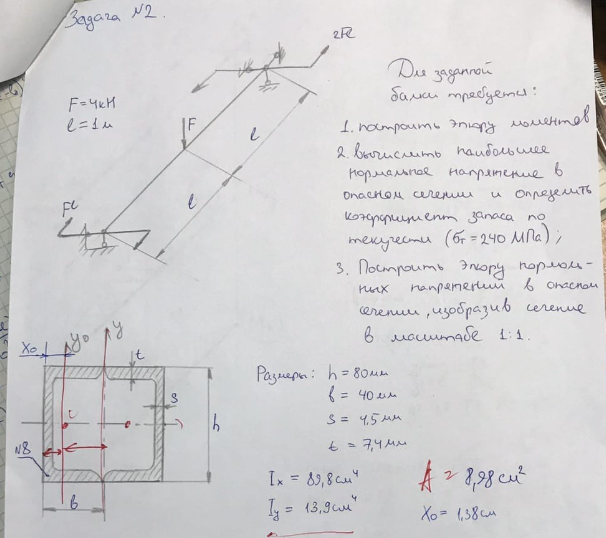 Задача №2.
2Fl
F = 4кН
l = 1м
F
l
l
Fl
Для заданной
балки требуется:
1. построить эпюру моментов
2. вычислить наибольшее
нормальное напряжение в
опасном сечении и определить
коэффициент запаса по
текучести (σт = 240 МПа);
3. Построить эпюру нормаль-
ных напряжений в опасном
сечении, изобразив сечение
в масштабе 1:1.
x₀
y₀
y
t
s
c
h
№8
b
Размеры: h = 80мм
b = 40мм
s = 4,5мм
t = 7,4мм
Ix = 89,8см⁴
Iy = 13,9см⁴
A = 8,98см²
x₀ = 1,38см